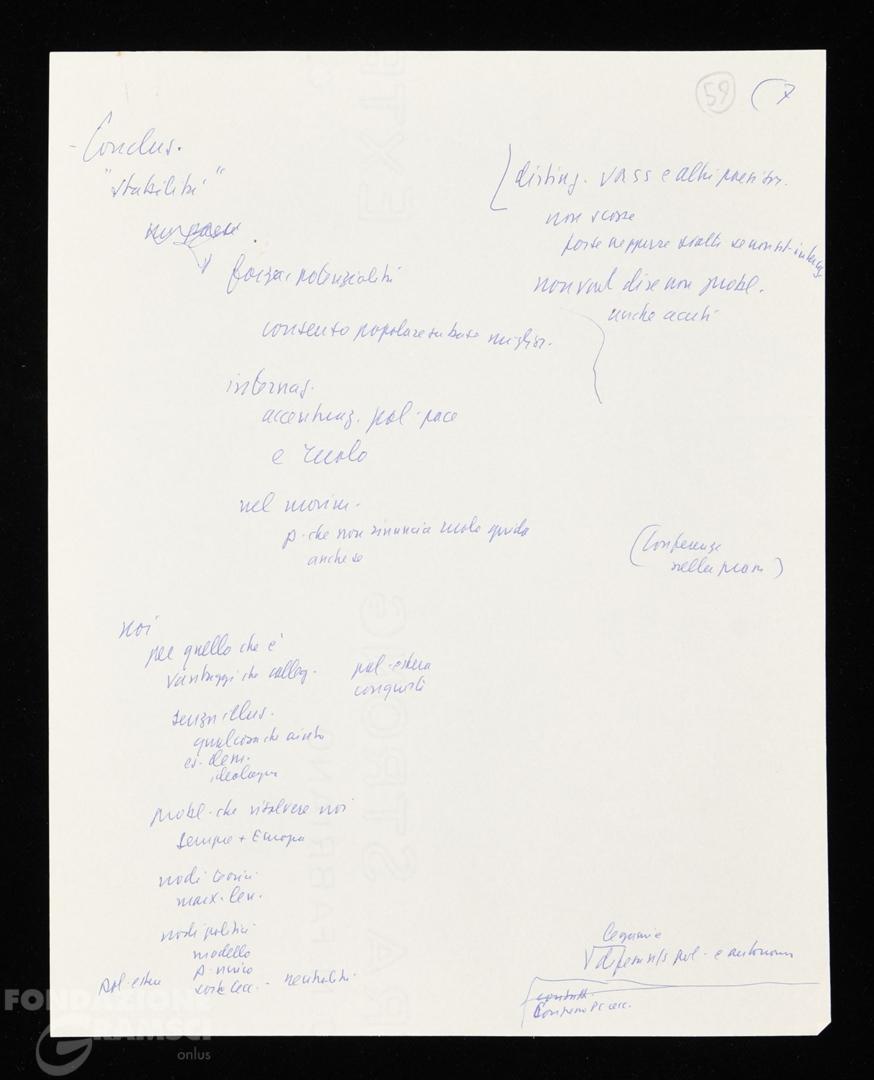 59
7
- Conclus.
"stabilità"
forza e potenzialità
consenso popolare su base miglior.
internaz.
accentuaz. pol. pace
e ruolo
nel movim.
p. che non rinuncia ruolo guida
anche se
disting. URSS e altri paesi soc.
non scosse
forse neppure
non vuol dire non probl.
anche acuti
(Conferenze
nelle)
noi
per quello che è
vantaggi che
pol. estera
conquiste
senza illus.
qualcosa che aiuta
es. dem.
ideologia
probl. che risolvere noi
sempre + Europa
nodi teorici
marx. len.
nodi politici
modello
p. unico
pol. estera
- neutralità
legame
pol. e autonom
FABRIANO
EXTRA STRONG
FONDAZIONE
GRAMSCI
onlus